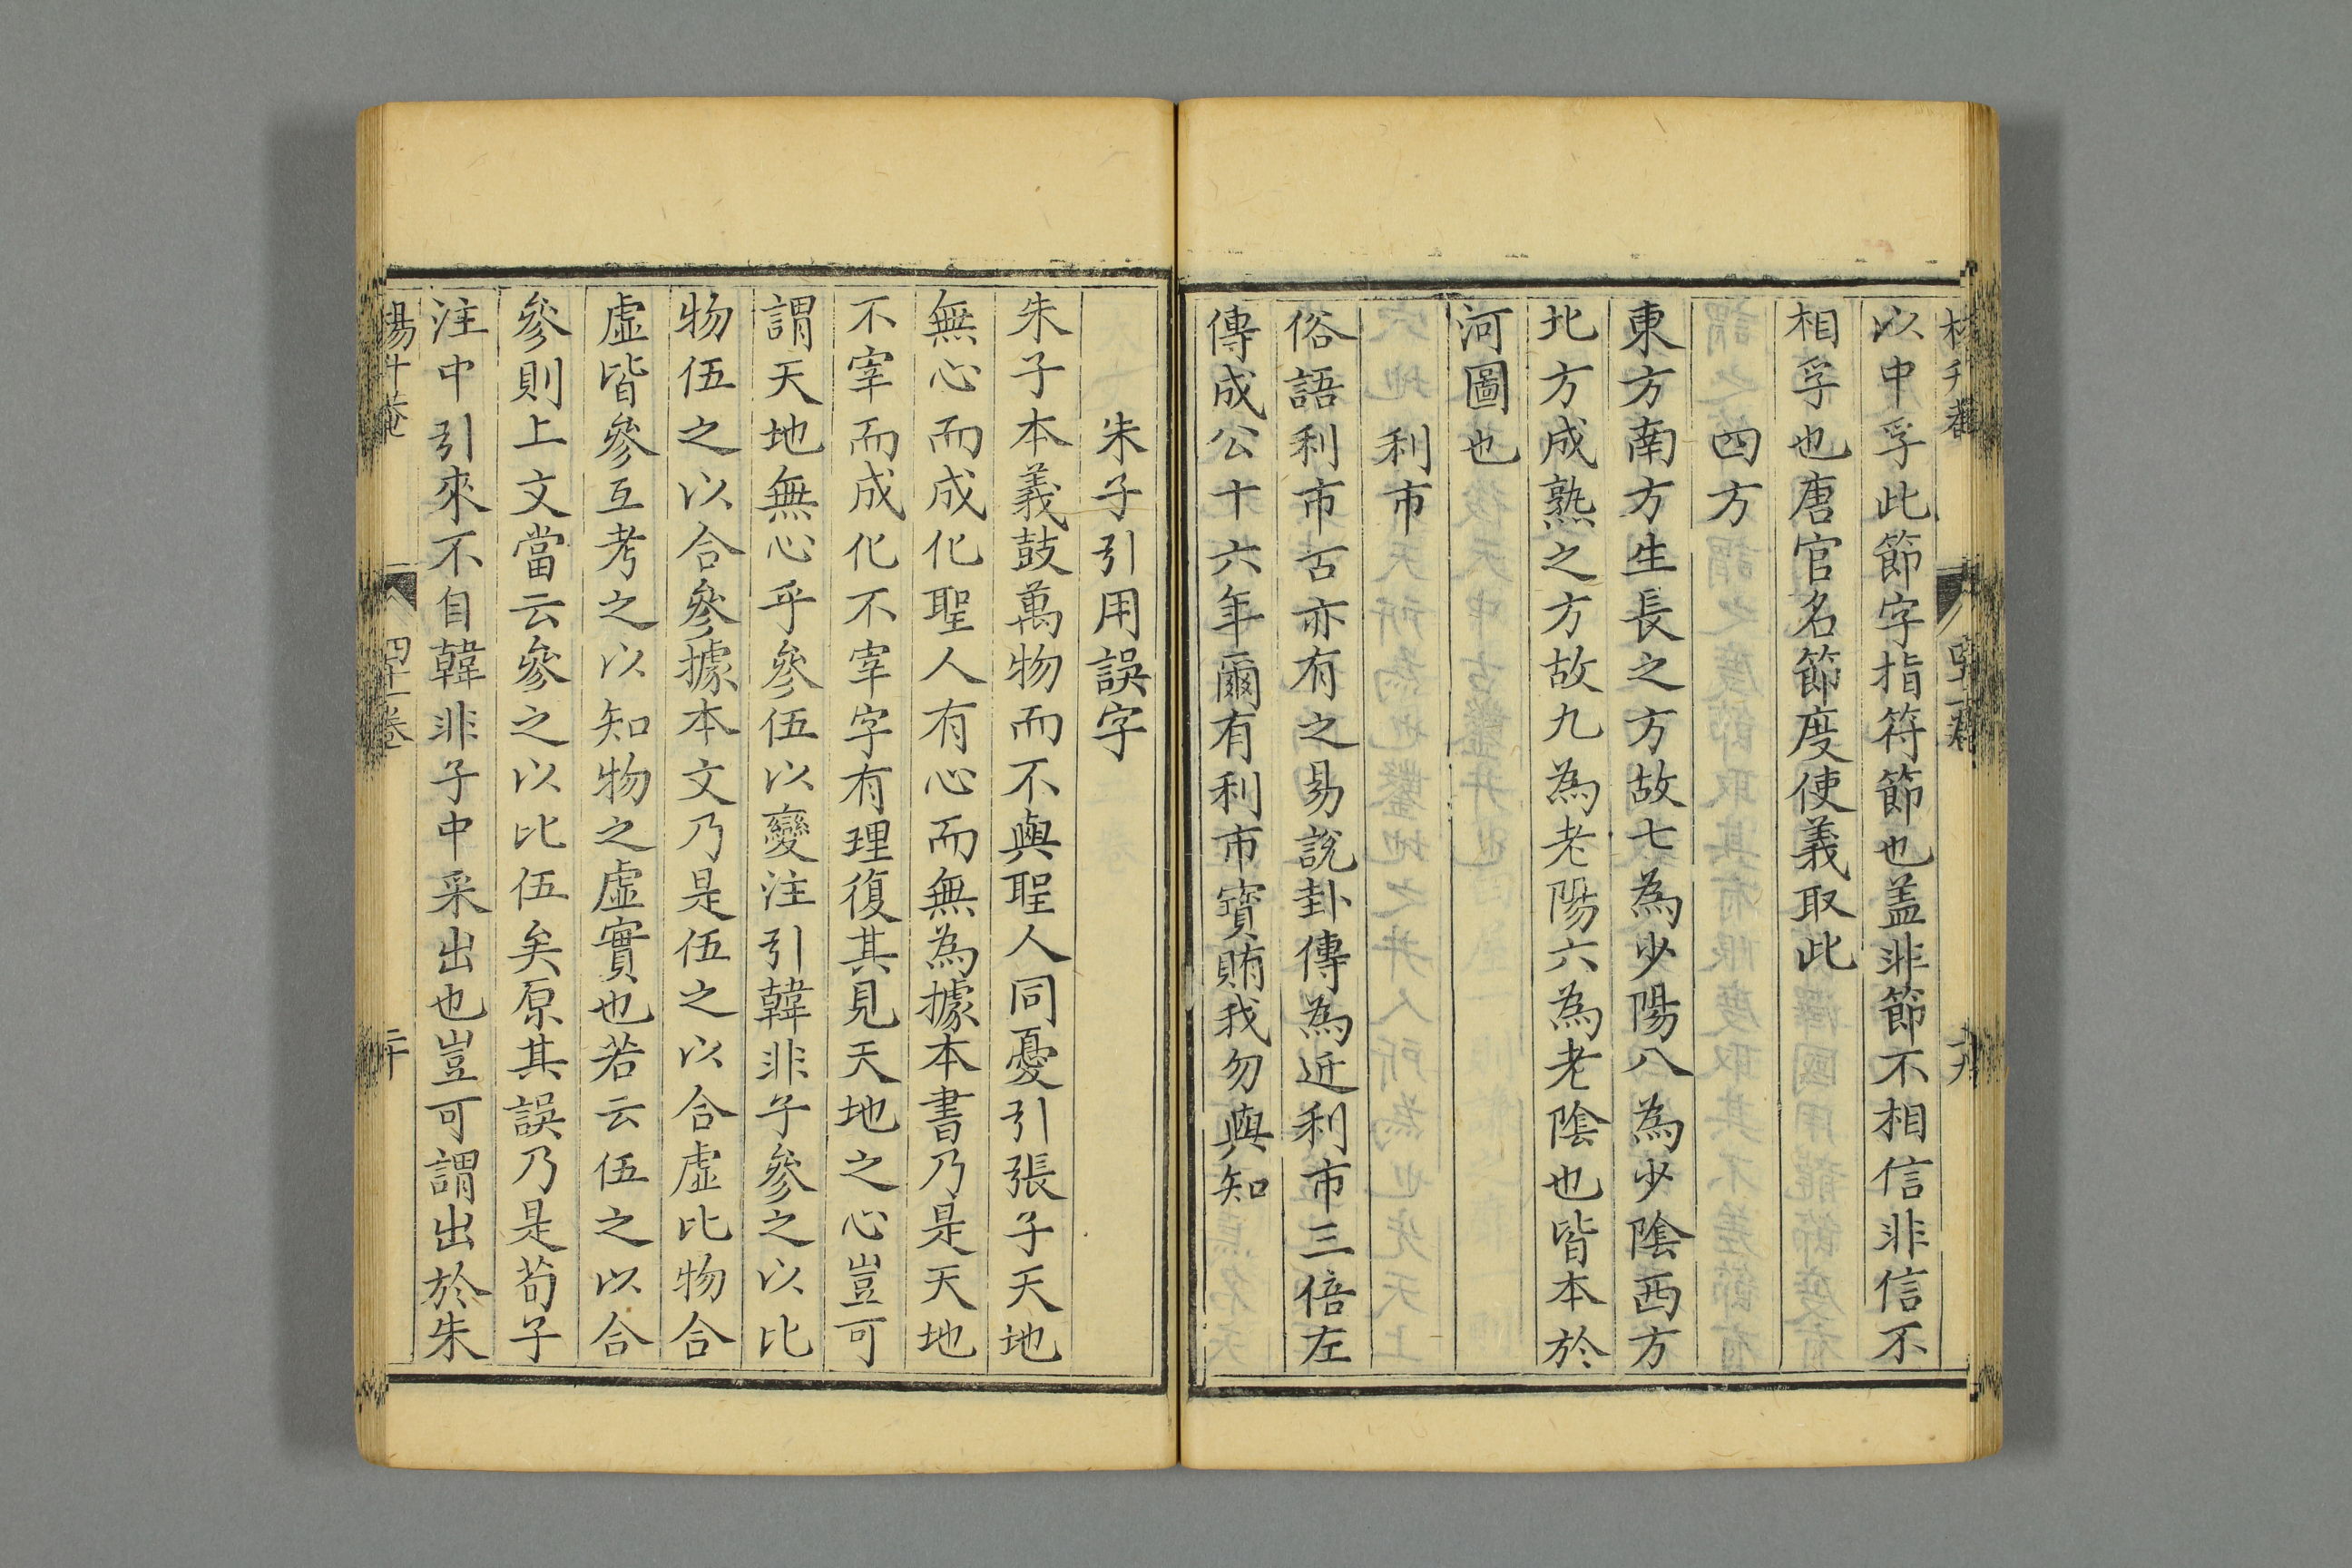 以中孚此節字指符節也盖非節不相信非信不
相孚也唐官名節度使義取此
四方
東方南方生長之方故七為少陽八為少陰西方
北方成熟之方故九為老陽六為老陰也皆本於
河圖也
利市
俗語利市古亦有之易說卦傳為近利市三倍左
傳成公十六年爾有利市寳賄我勿與知
朱子引用誤字
朱子本義鼓萬物而不與聖人同憂引張子天地
無心而成化聖人有心而無為據本書乃是天地
不宰而成化不宰字有理復其見天地之心豈可
謂天地無心乎參伍以變注引韓非子參之以比
物伍之以合參據本文乃是伍之以合虛比物合
虛皆參互考之以知物之虛實也若云伍之以合
參則上文當云參之以比伍矣原其誤乃是荀子
注中引來不自韓非子中采出也豈可謂出於朱
楊升菴
四十一卷
二十